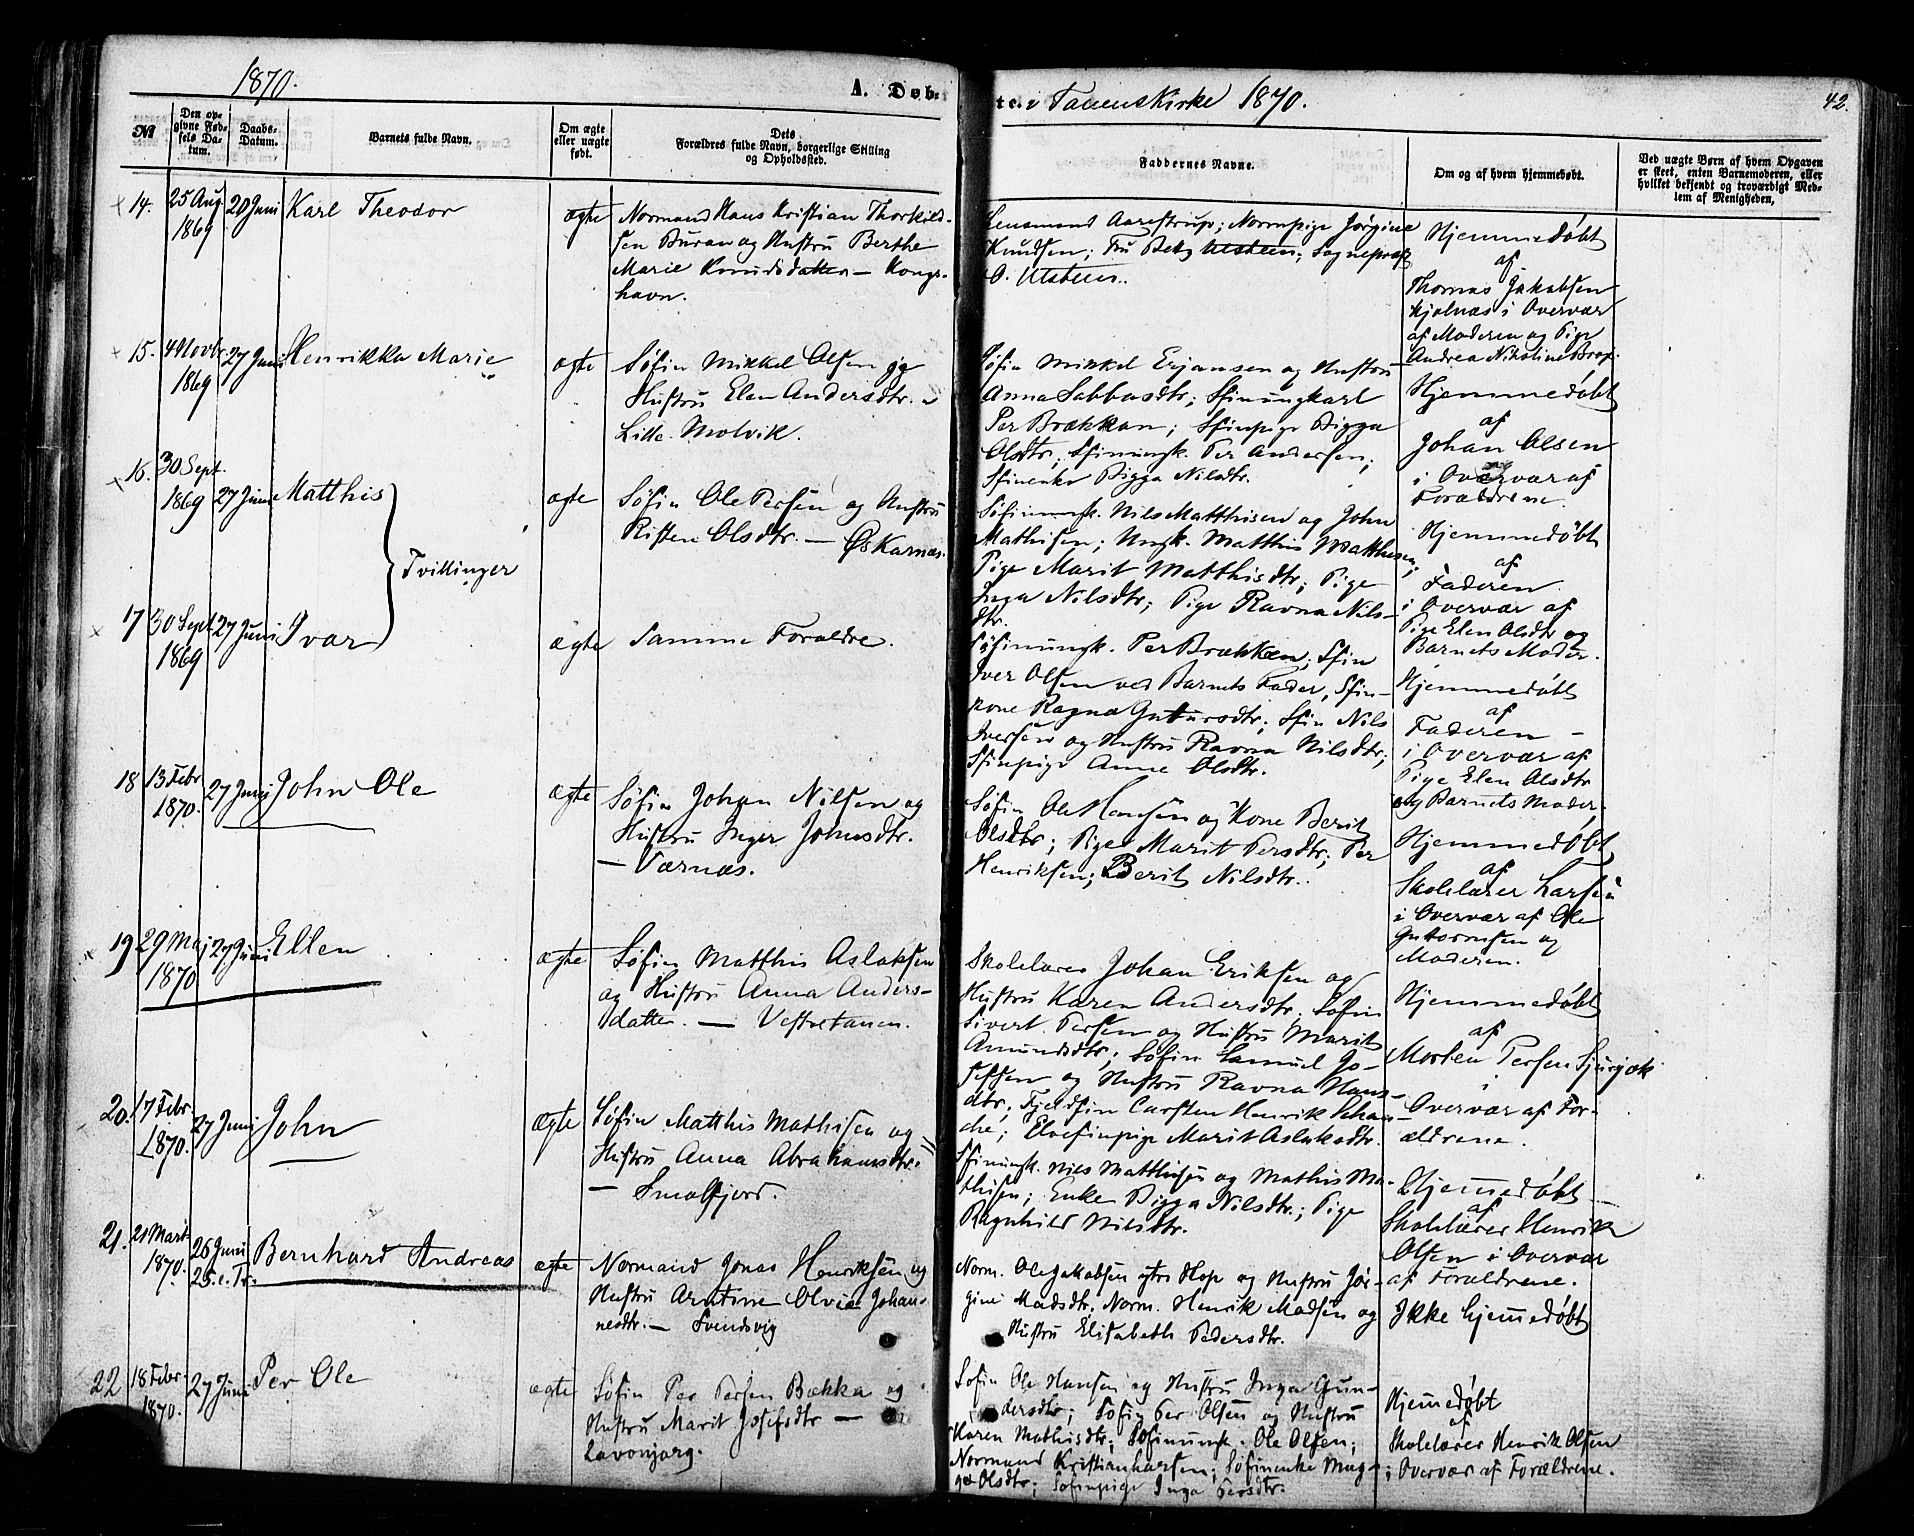 1870.
A. Døb-
te. i Tanens Kirke 1870.
42.
No
Den op-
givne Fød-
sels Da-
tum.
Daabs-
Datum.
Barnets fulde Navn.
Om ægte
eller uægte
født.
Dets
Forældres fulde Navn, borgerlige Stilling
og Opholdssted.
Faddernes Navne.
Om og af hvem hjemmedøbt.
Ved uægte Børn af hvem Opgaven
er skeet, enten Barnemoderen, eller
hvilket bekjendt og troværdigt Med-
lem af Menigheden,
14.
25 Aug
1869
20 Juni
Karl Theodor
ægte
Normand Hans Kristian Thorkild-
sen Buran og Hustru Berthe
Marie Knudsdatter — Kongs-
havn.
Lensmand Aarestrup; Norrnpige Jørgine
Knudsen; Fru Betzy Utsteen; Sognepræst
O. Utsteen.
Hjemmedøbt
af
Thomas Jakobsen
i Overvær
af Moderen og Pige
Andrea Nikoline
15.
4 Novbr.
1869
27 Juni
Henrikka Marie
ægte
Søfin Mikkel Olsen og
Hustru Elen Andersdtr.
Lille-Molvik.
Søfin Mikkel Erjansen og Hustru
Anna Sabbasdtr; Sfinungkarl
Per Brækkan; Sfinpige Bigga
Olsdtr; Sfinungk. Per Andersen;
Sfinenke Bigga Nilsdtr.
Hjemmedøbt
af
Johan Olsen
i Overvær af
Forældrene.
16.
30 Sept.
1869
27 Juni
Matthis
Tvillinger
ægte
Søfin Ole Persen og Hustru
Risten Olsdtr. — Øskarnæs.
Søfinungk. Nils Matthisen og John
Mathisen; Ungk. Matthis Matthisen;
Pige Marit Matthisdtr; Pige
Inga Nilsdtr; Pige Ravna Nils-
dtr.
Hjemmedøbt
af
Faderen
i Overvær af
Pige Elen Olsdtr og
Barnets Moder.
17
30 Sept.
1869
27 Juni
Ivar
ægte
Samme Forældre.
Søfinungk. Per Brækken; Sfin
Iver Olsen ved Barnets Fader, Sfin-
kone Ragna Guttursdtr; Sfin Nils
Iversen og Hustru Ravna Nilsdtr;
Sfinpige Anne Olsdtr.
Hjemmedøbt
af
Faderen —
i Overvær af
Pige Elen Olsdtr
og Barnets Moder.
18
13 Febr
1870.
27 Juni
John Ole
ægte
Søfin Johan Nilsen og
Hustru Inger Johnsdtr.
— Værnæs.
Søfin Ole Hansen og Kone Berit
Olsdtr; Pige Marit Persdtr; Per
Henriksen; Berit Nilsdtr.
Hjemmedøbt
af
Skolelærer Larsen
i Overvær af Ole
Guttormsen og
Moderen.
19
29 Maj
1870
27 Juni
Ellen
ægte
Søfin Matthis Aslaksen
og Hustru Anna Anders-
datter. — Vestretanen.
Skolelærer Johan Eriksen og
Hustru Karen Andersdtr; Søfin
Sivert Persen og Hustru Marit
Amundsdtr; Søfin Samuel Jo-
sefsen og Hustru Ravna Hans-
dtr; Fjeldfin Carsten Henrik Schan-
che; Elvefinpige Marit Aslaksdtr.
Hjemmedøbt
af
Morten Persen Sjursjok
i
Overvær af For-
ældrene.
20.
17 Febr.
1870.
27 Juni
John
ægte
Søfin Matthis Mathisen og
Hustru Anna Abrahamsdtr.
— Smalfjord.
Sfinungk. Nils Matthisen og Mathis Ma-
thisen; Enke Bigga Nilsdtr.; Pige
Ragnhild Nilsdtr.
Hjemmedøbt
af
Skolelærer Henrik
Olsen i Overvær
af Forældrene.
21.
21 Marts
1870.
26 Juni
2 S. e. Tr.
Bernhard Andreas
ægte
Normand Jonas Henriksen og
Hustru Arntine Olvia Johan-
nesdtr. — Svendsvig
Norm. Ole Jakobsen Hop og Hustru Jør-
gine Madsdtr. Norm. Henrik Madsen og
Hustru Elisabeth Pedersdtr.
Ikke hjemmedøbt
22
18 Febr.
1870.
27 Juni
Per Ole
ægte
Søfin Per Persen Bækka og
Hustru Marit Josefsdtr —
Lavonjarg.
Søfin Ole Hansen og Hustru Inga Gun-
dersdtr; Søfin Per Olsen og Hustru
Karen Mathisdtr; Søfinungk. Ole Olsen;
Normand Kristian Larsen; Søfinenke Mag-
ga Olsdtr; Søfinpige Inga Persdtr.
Hjemmedøbt
af
Skolelærer Henrik Olsen
i Overvær af Forældrene.